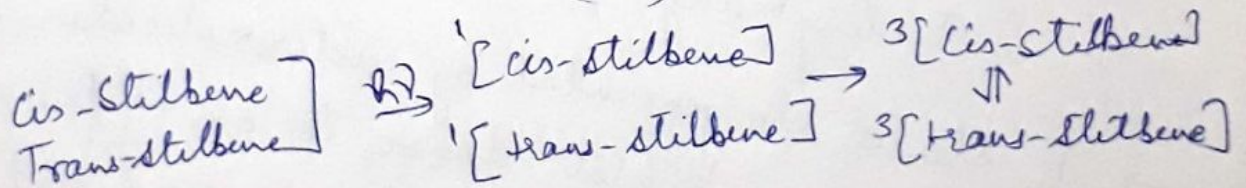 Cis-Stilbene ] hν→ ¹[cis-stilbene] → ³[Cis-Stilbene]
Trans-stilbene ] ¹[trans-stilbene] ⇌ ³[trans-Stilbene]